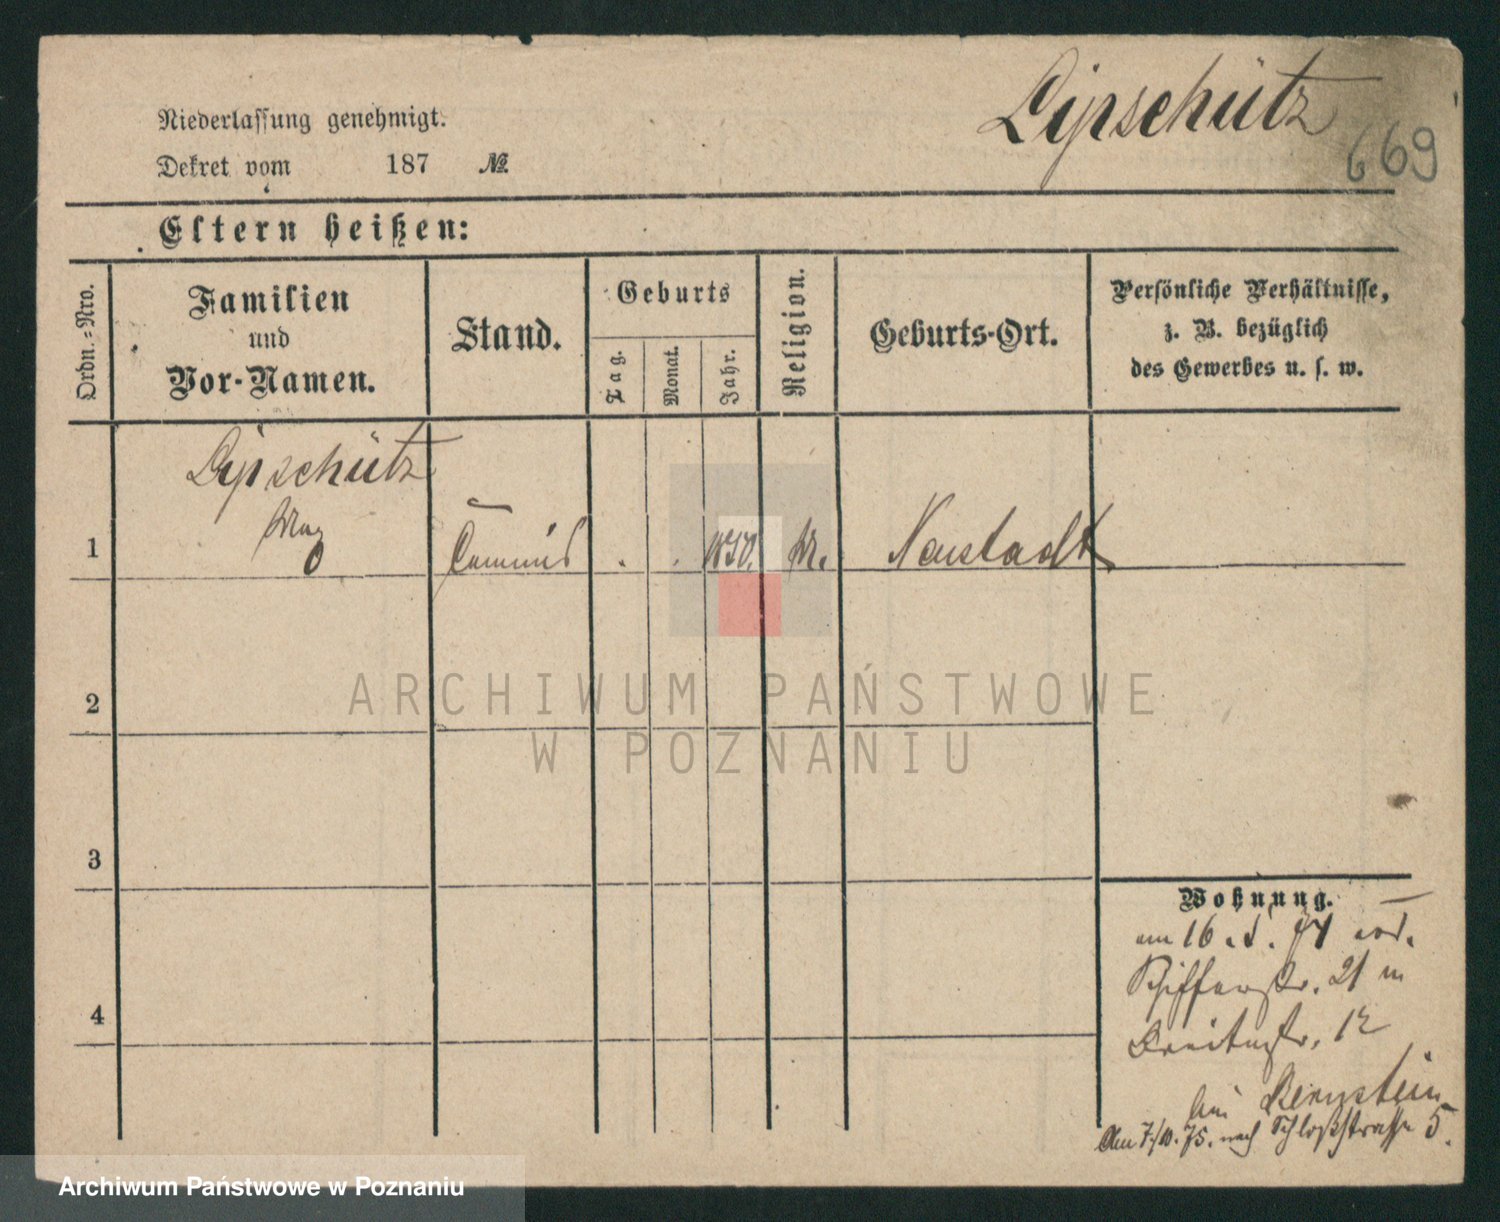 Lipschütz
669
Niederlassung genehmigt.
Dekret vom 187 №
Eltern heißen:
Ordn.-Nro.
Familien
und
Vor-Namen.
Stand.
Geburts
Tag.
Monat.
Jahr.
Religion.
Geburts-Ort.
Persönliche Verhältnisse,
z. B. bezüglich
des Gewerbes u. s. w.
Lipschütz
1 Max Commis . . 1850. M. Neustadt
2
3
4
Wohnung.
am 16
21
Breitestr. 12
bei Bernstein
Am 7./10. 75. nach Schloßstrasse 5.
ARCHIWUM PAŃSTWOWE
W POZNANIU
Archiwum Państwowe w Poznaniu